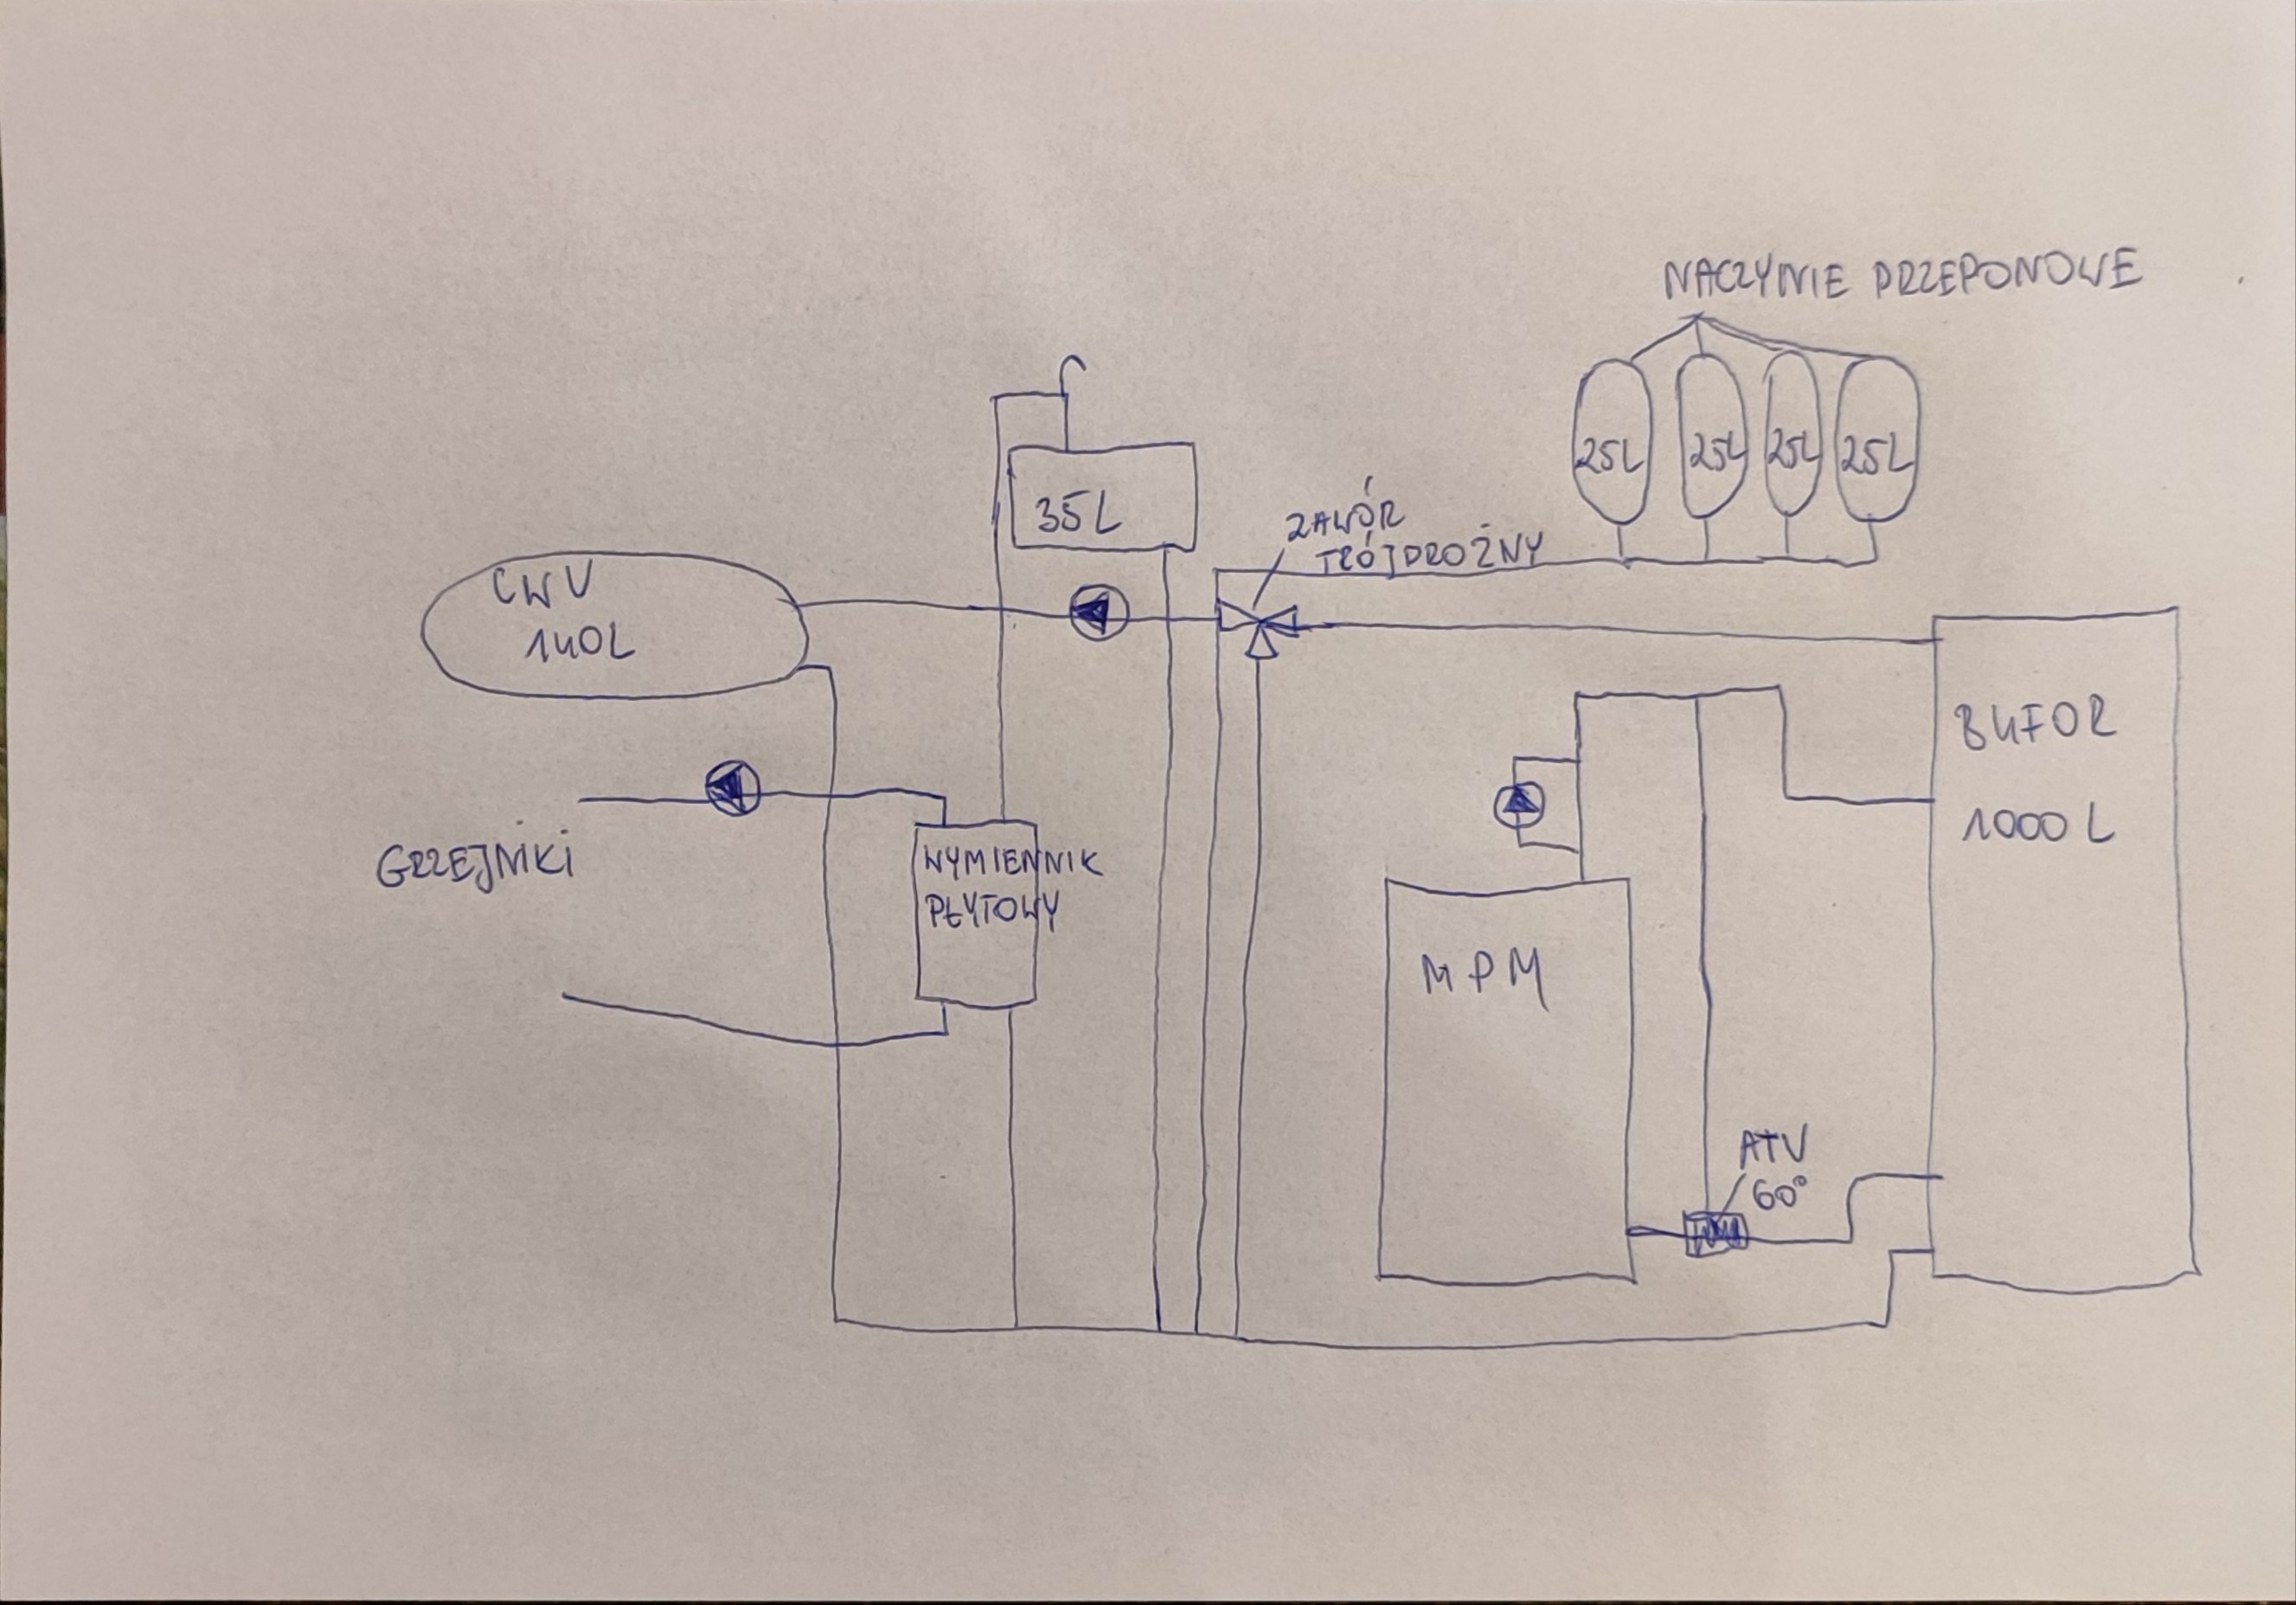 NACZYNIE PRZEPONOWE
25L 25L 25L 25L
35L
ZAWÓR
TRÓJDROŻNY
CWU
140L
BUFOR
1000L
GRZEJNIKI
WYMIENNIK
PŁYTOWY
MPM
ATV
60°